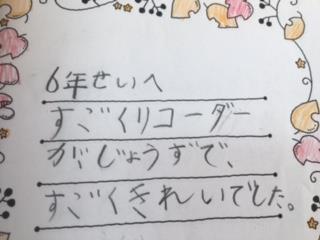 6年せいへ
すごくリコーダー
がじょうずで、
すごくきれいでした。